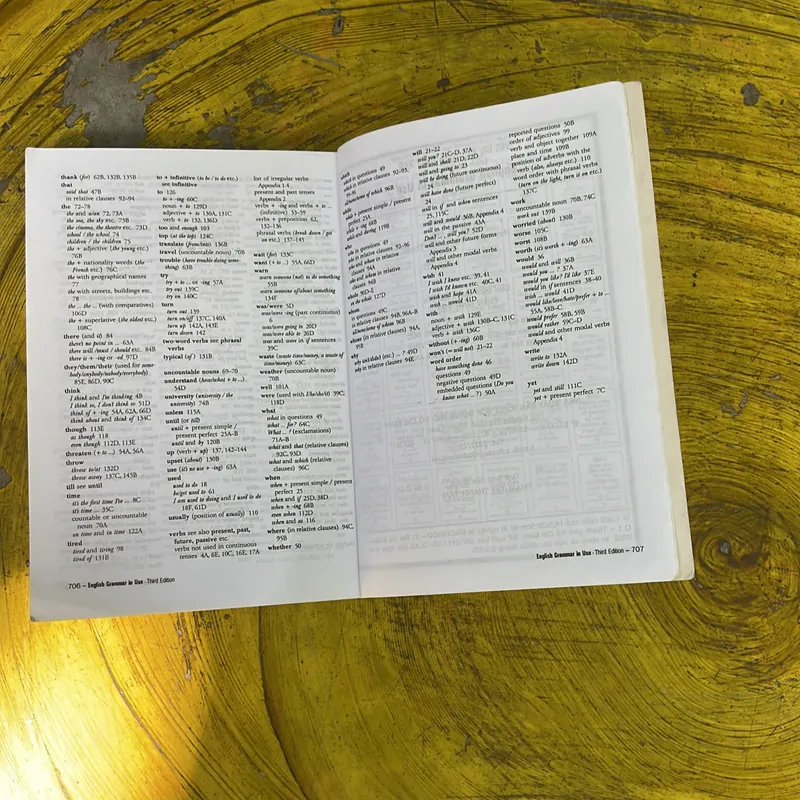 thank (for) 62B, 132B, 135B
that
said that 47B
in relative clauses 92–94
the 72–78
the and a/an 72, 73A
the sea, the sky etc. 73B
the cinema, the theatre etc. 73D
school / the school 74
children / the children 75
the + adjective (the young etc.)
76B
the + nationality words (the
French etc.) 76C
the with geographical names
77
the with streets, buildings etc.
78
the ... the ... (with comparatives)
106D
the + superlative (the oldest etc.)
108C
there (and it) 84
there's no point in ... 63A
there will/must / should etc. 84B
there is + -ing or -ed 97D
they/them/their (used for some-
body/anybody/nobody/everybody)
85E, 86D, 90C
think
I think and I'm thinking 4B
I think so, I don't think so 51D
think of + -ing 54A, 62A, 66D
think about and think of 134C
though 113E
as though 118
even though 112D, 113E
threaten (+ to ...) 54A, 56A
throw
throw to/at 132D
throw away 137C, 145B
till see until
time
it's the first time I've ... 8C
it's time ... 35C
countable or uncountable
noun 70A
on time and in time 122A
tired
tired and tiring 98
tired of 131B
to + infinitive (to be / to do etc.)
see infinitive
to 126
to + -ing 60C
noun + to 129D
adjective + to 130A, 131C
verb + to 132, 136D
too and enough 103
top (at the top) 124C
translate (from/into) 136B
travel (uncountable noun) 70B
trouble (have trouble doing some-
thing) 63B
try
try + to ... or -ing 57A
try out 139C
try on 140C
turn
turn out 139
turn on/off 137C, 140A
turn up 142A, 145E
turn down 142
two-word verbs see phrasal
verbs
typical (of) 131B
uncountable nouns 69–70
understand (how/what + to ...)
54D
university (university / the
university) 74B
unless 115A
until (or till)
until + present simple /
present perfect 25A–B
until and by 120B
up (verb + up) 137, 142–144
upset (about) 130B
use (it's no use + -ing) 63A
used
used to do 18
be/get used to 61
I am used to doing and I used to do
18F, 61D
usually (position of usually) 110
verbs see also present, past,
future, passive etc.
verbs not used in continuous
tenses 4A, 6E, 10C, 16E, 17A
706 – English Grammar in Use - Third Edition
list of irregular verbs
Appendix 1.4
present and past tenses
Appendix 2
verbs + -ing and verbs + to ..
(infinitive) 53–59
verbs + preposition 62,
132–136
phrasal verbs (break down / get
on etc.) 137–145
wait (for) 133C
want (+ to ...) 55A, 66D
warn
warn someone (not) to do something
55B
warn someone of/about something
134F
was/were 5D
was/were -ing (past continuous)
6
was/were going to 20D
was/were able to 26D
was and were in if sentences
39C
waste (waste time/money, a waste of
time/money) 63C
weather (uncountable noun)
70B
well 101A
were (used with I/he/she/it) 39C,
118D
what
what in questions 49
what ... for? 64C,
What ... ? (exclamations)
71A–B
what and that (relative clauses)
92C, 93D
what and which (relative
clauses) 96C
when
when + present simple / present
perfect 25
when and if 25D, 38D
when + -ing 68B
even when 112D
when and as 116
where (in relative clauses) 94C,
95B
whether 50
which
which in questions 49
which in relative clauses 92–93,
95–96
all/none/some of which 96B
while
while + present simple / present
perfect 25A
while + -ing 68B
while and during 119B
who
who in questions 49
who in relative clauses 92–96
who and whom in relative
clauses 94A
who and whose in relative
clauses 94B
whole 90D–E
on the whole 127D
whom
in questions 49C
in relative clauses 94B, 96A–B
all/none/some of whom 96B
whose (in relative clauses) 94B,
95A
why
why and didn't (etc.) ... ? 49D
why in relative clauses 94E
will 21–22
will you? 21C–D, 37A
will and shall 21D, 22D
will and going to 23
will be doing (future continuous)
24
will have done (future perfect)
24
will in if and when sentences
25, 115C
will and would 36B, Appendix 4
will in the passive 43A
Don't ... will you? 52D
will and other future forms
Appendix 3
will and other modal verbs
Appendix 4
wish 41
I wish I knew etc. 39, 41
I wish I'd known etc. 40C, 41
wish and hope 41A
wish ... would 41D
with
noun + with 129E
adjective + with 130B–C, 131C
verb + with 136C
without (+ -ing) 60B
won't (= will not) 21–22
word order
have something done 46
questions 49
negative questions 49D
embedded questions (Do you
know what ... ?) 50A
reported questions 50B
order of adjectives 99
verb and object together 109A
place and time 109B
position of adverbs with the
verb (also, always etc.) 110
word order with phrasal verbs
(turn on the light, turn it on etc.)
137C
work
uncountable noun 70B, 74C
work out 139B
worried (about) 130B
worse 105C
worst 108B
worth (it's worth + -ing) 63A
would 36
would and will 36B
would you ... ? 37A
would you like? I'd like 37E
would in if sentences 38–40
wish ... would 41D
would like/love/hate/prefer + to ...
55A, 58B–C
would prefer 58B, 59B
would rather 59C–D
would and other modal verbs
Appendix 4
write
write to 132A
write down 142D
yet
yet and still 111C
yet + present perfect 7C
English Grammar in Use - Third Edition – 707